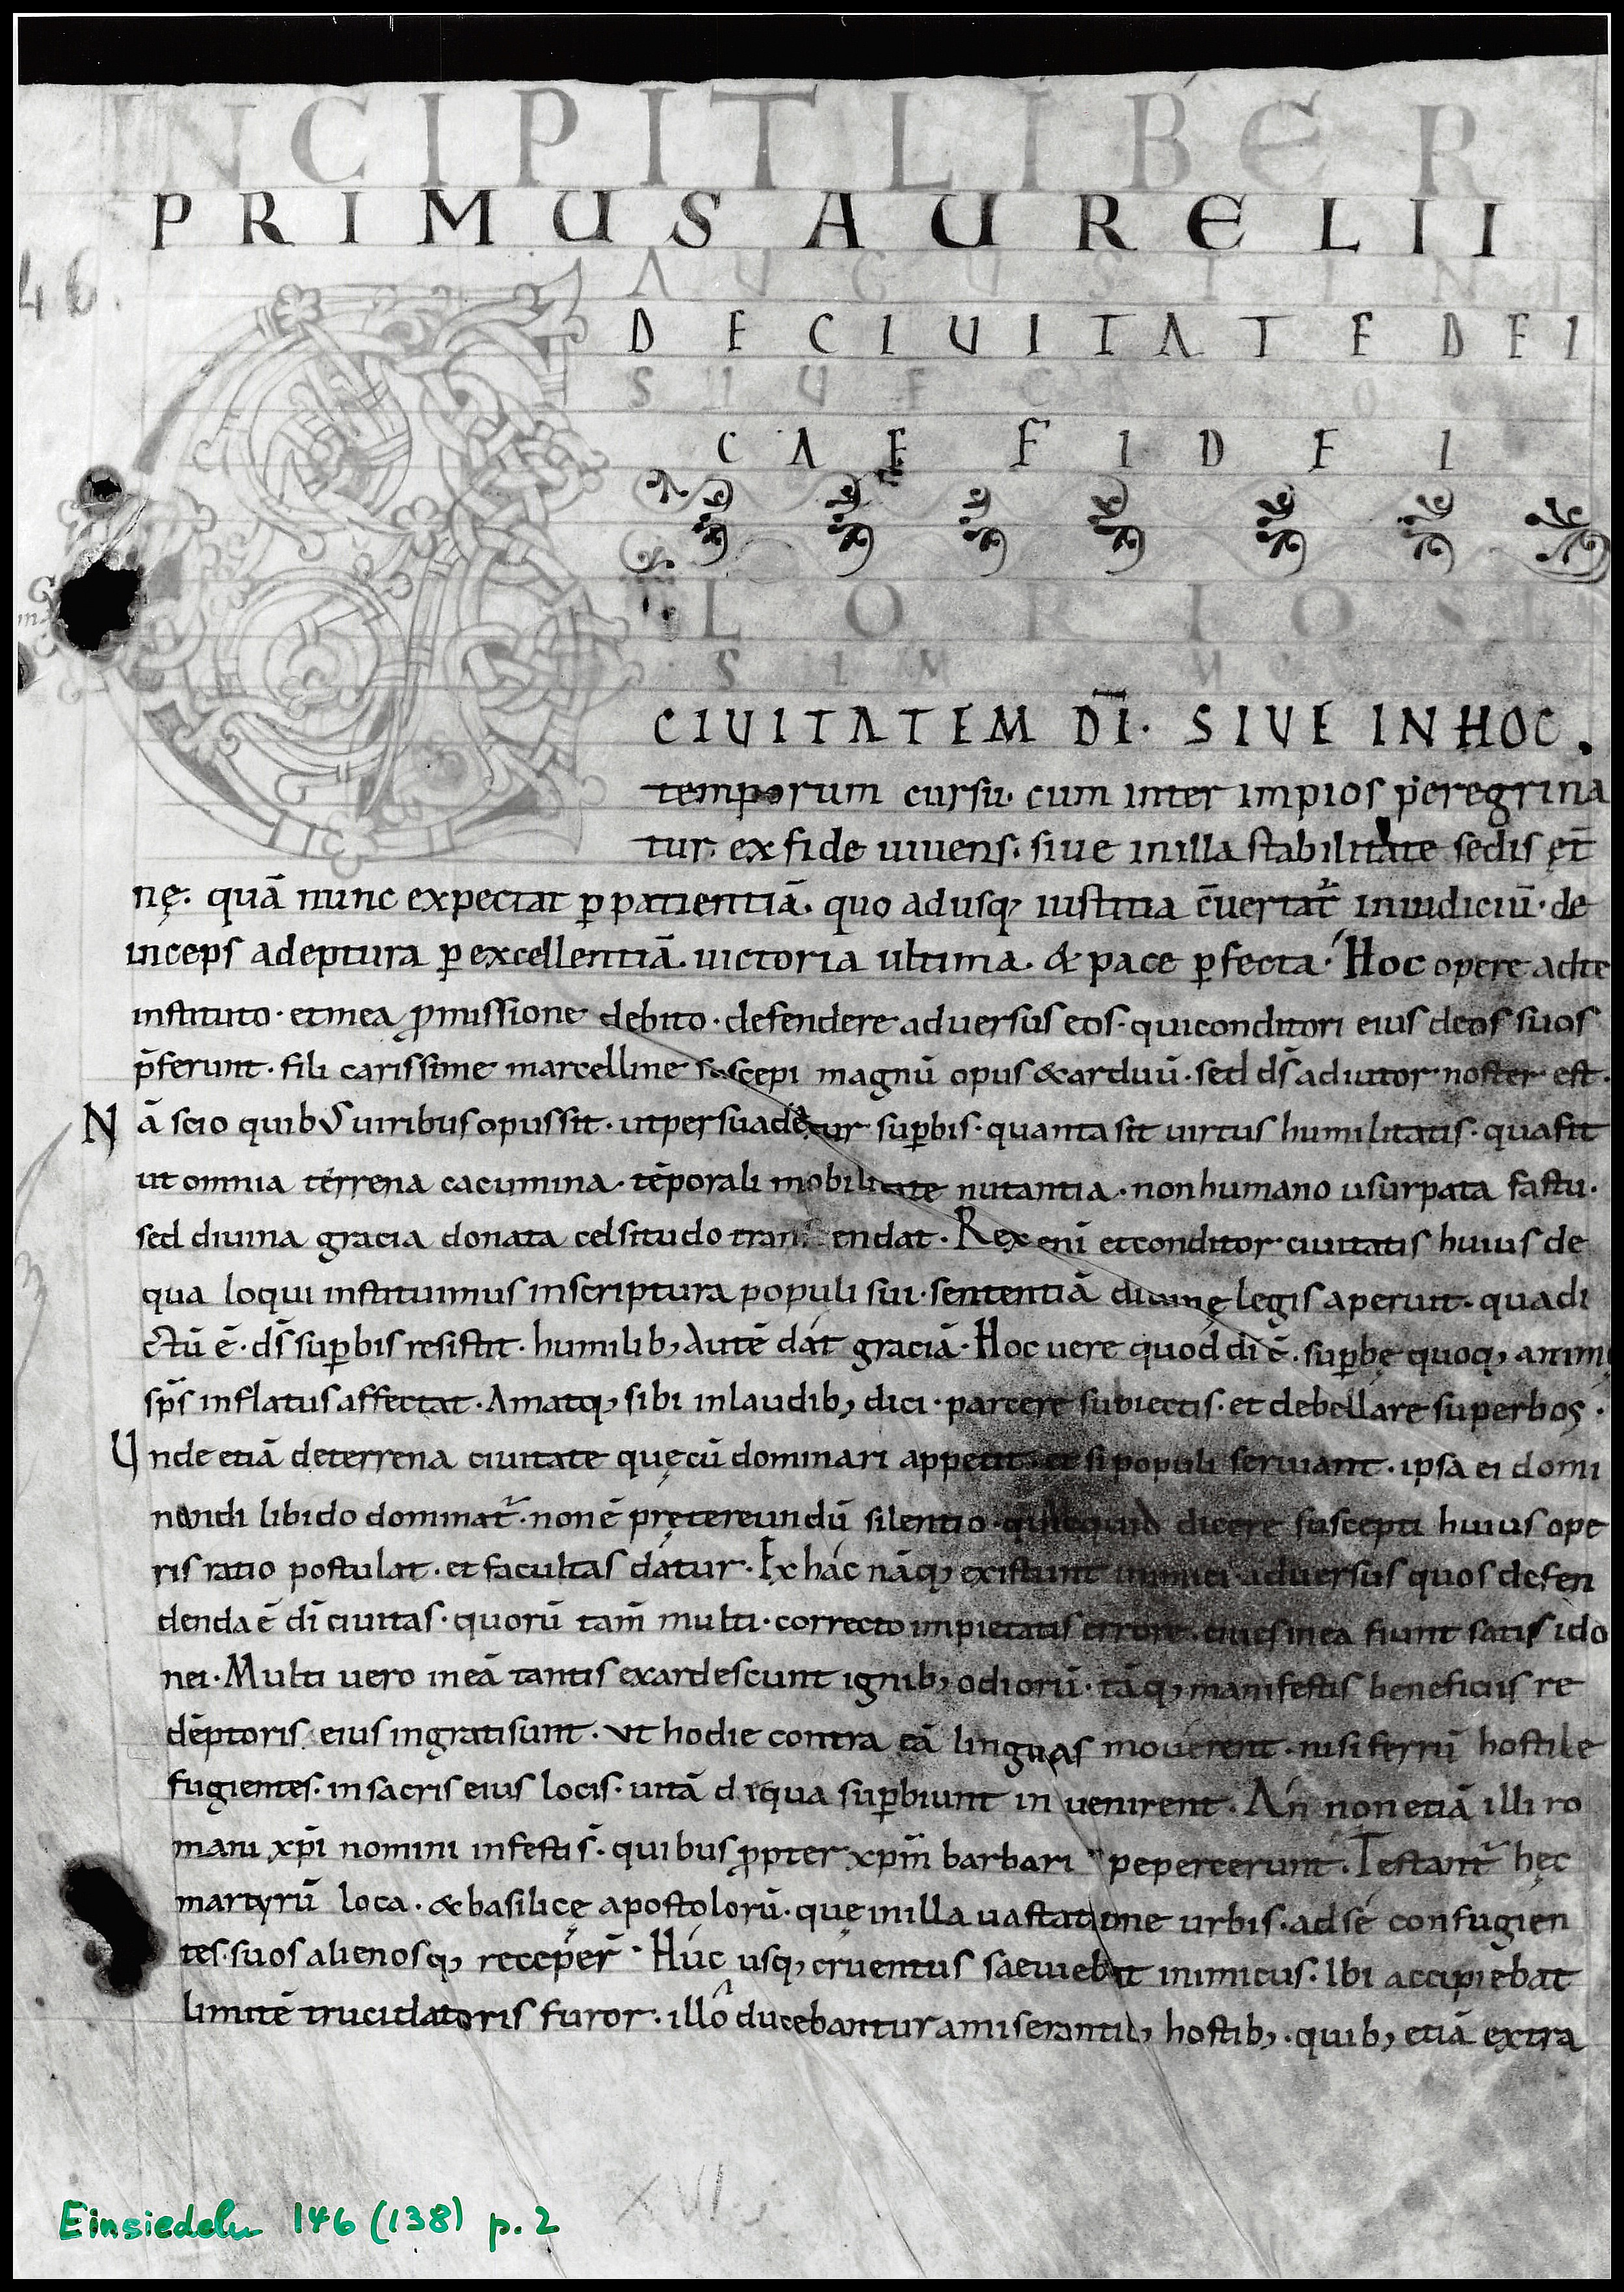 INCIPIT LIBER
PRIMUS AURELII
46.
AUGUSTINI
DE CIUITATE DEI
SIUE
CAE FIDEI
G LORIOS
SIM
CIUITATEM DĪ· SIUE IN HOC
temporum cursu· cum inter impios peregrina
tur· ex fide uiuens· siue in illa stabilitate sedis ęt̄
nę· quā nunc expectat ꝑ patientiā· quo adusq; iustitia c̄uertat᷑ in iudiciū· de
inceps adeptura ꝑ excellentiā· uictoria ultima· & pace ꝑfecta· Hoc opere ad te
instituto· et mea ꝓmissione debito· defendere aduersus eos· qui conditori eius deos suos
p̄ferunt· fili carissime marcelline suscepi magnū opus & arduū· sed ds̄ adiutor noster est·
Nā scio quib; uiribus opus sit· ut persuadetur suꝑbis· quanta sit uirtus humilitatis· qua fit
ut omnia terrena cacumina· tēporali mobilitate nutantia· non humano usurpata fastu·
sed diuina gracia donata celsitudo transcendat· Rex enī et conditor ciuitatis huius de
qua loqui instituimus in scriptura populi sui· sententiā diuinę legis aperuit· qua di
ctū ē· ds̄ suꝑbis resistit· humilib; autē dat graciā· Hoc uere quod di ē· suꝑbę quoq; anime
sp̄s inflatus affectat· Amatq; sibi in laudib; dici· parcere subiectis· et debellare superbos·
Unde etiā de terrena ciuitate quę cū dominari appetit· et si populi seruiant· ipsa ei domi
nandi libido dominat᷑· non ē prętereundū silentio· quicquid dicere suscepti huius ope
ris ratio postulat· et facultas datur· Ex hac nāq; existunt inimici aduersus quos defen
denda ē dī ciuitas· quorū tam̄ multi· correcto impietatis errore· ciues in ea fiunt satis ido
nei· Multi uero in eā tantis exardescunt ignib; odiorū· tāq; manifestis beneficiis re
dēptoris eius ingrati sunt· Ut hodie contra eā linguas mouerent· nisi ferrū hostile
fugientes· in sacris eius locis· uitā de qua suꝑbiunt in uenirent· An non etiā illi ro
mani xp̄i nomini infesti s̄· quibus ꝓpter xp̄m barbari pepercerunt· Testant᷑ hęc
martyrū loca· & basilicę apostolorū· quę in illa uastatione urbis· ad se confugien
tes· suos alienosq; receper̄· Huc usq; cruentus saeuiebat inimicus· Ibi accipiebat
limitē trucidatoris furor· illo ducebantur a miserantib; hostib;· quib; etiā extra
XVI
Einsiedeln 146 (138) p. 2